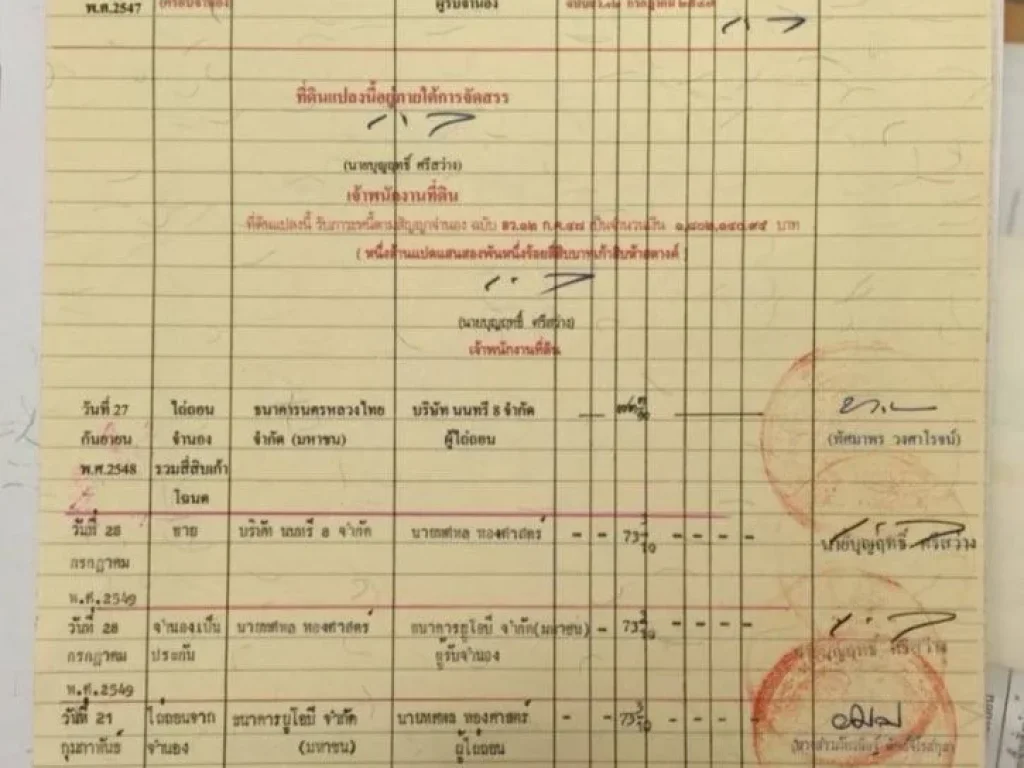 พ.ศ.2547 (ครอบจำนอง) ผู้รับจำนอง
ที่ดินแปลงนี้อยู่ภายใต้การจัดสรร
(นายบุญฤทธิ์ ศรีสว่าง)
เจ้าพนักงานที่ดิน
ที่ดินแปลงนี้ รับภาระหนี้ตามสัญญาจำนอง ฉบับ ลว.๑๒ ก.ค.๔๗ เป็นจำนวนเงิน ๑,๘๐๒,๑๔๐.๙๕ บาท
( หนึ่งล้านแปดแสนสองพันหนึ่งร้อยสี่สิบบาทเก้าสิบห้าสตางค์ )
(นายบุญฤทธิ์ ศรีสว่าง)
เจ้าพนักงานที่ดิน
วันที่ 27 ไถ่ถอน ธนาคารนครหลวงไทย บริษัท นนทรี 8 จำกัด
กันยายน จำนอง จำกัด (มหาชน) ผู้ไถ่ถอน (ทัศมาพร วงศาโรจน์)
พ.ศ.2548 รวมสี่สิบเก้า
โฉนด
วันที่ 28 ขาย บริษัท นนทรี 8 จำกัด ทองศาสตร์ - - 73 - - - - นายบุญฤทธิ์ ศรีสว่าง
กรกฎาคม
พ.ศ.2549
วันที่ 28 จำนองเป็น ทองศาสตร์ ธนาคารยูโอบี จำกัด(มหาชน) - 73 - - - -
กรกฎาคม ประกัน ผู้รับจำนอง นายบุญฤทธิ์ ศรีสว่าง
พ.ศ.2549
วันที่ 21 ไถ่ถอนจาก ธนาคารยูโอบี จำกัด ทองศาสตร์ - - 73 - - - -
กุมภาพันธ์ จำนอง (มหาชน) ผู้ไถ่ถอน